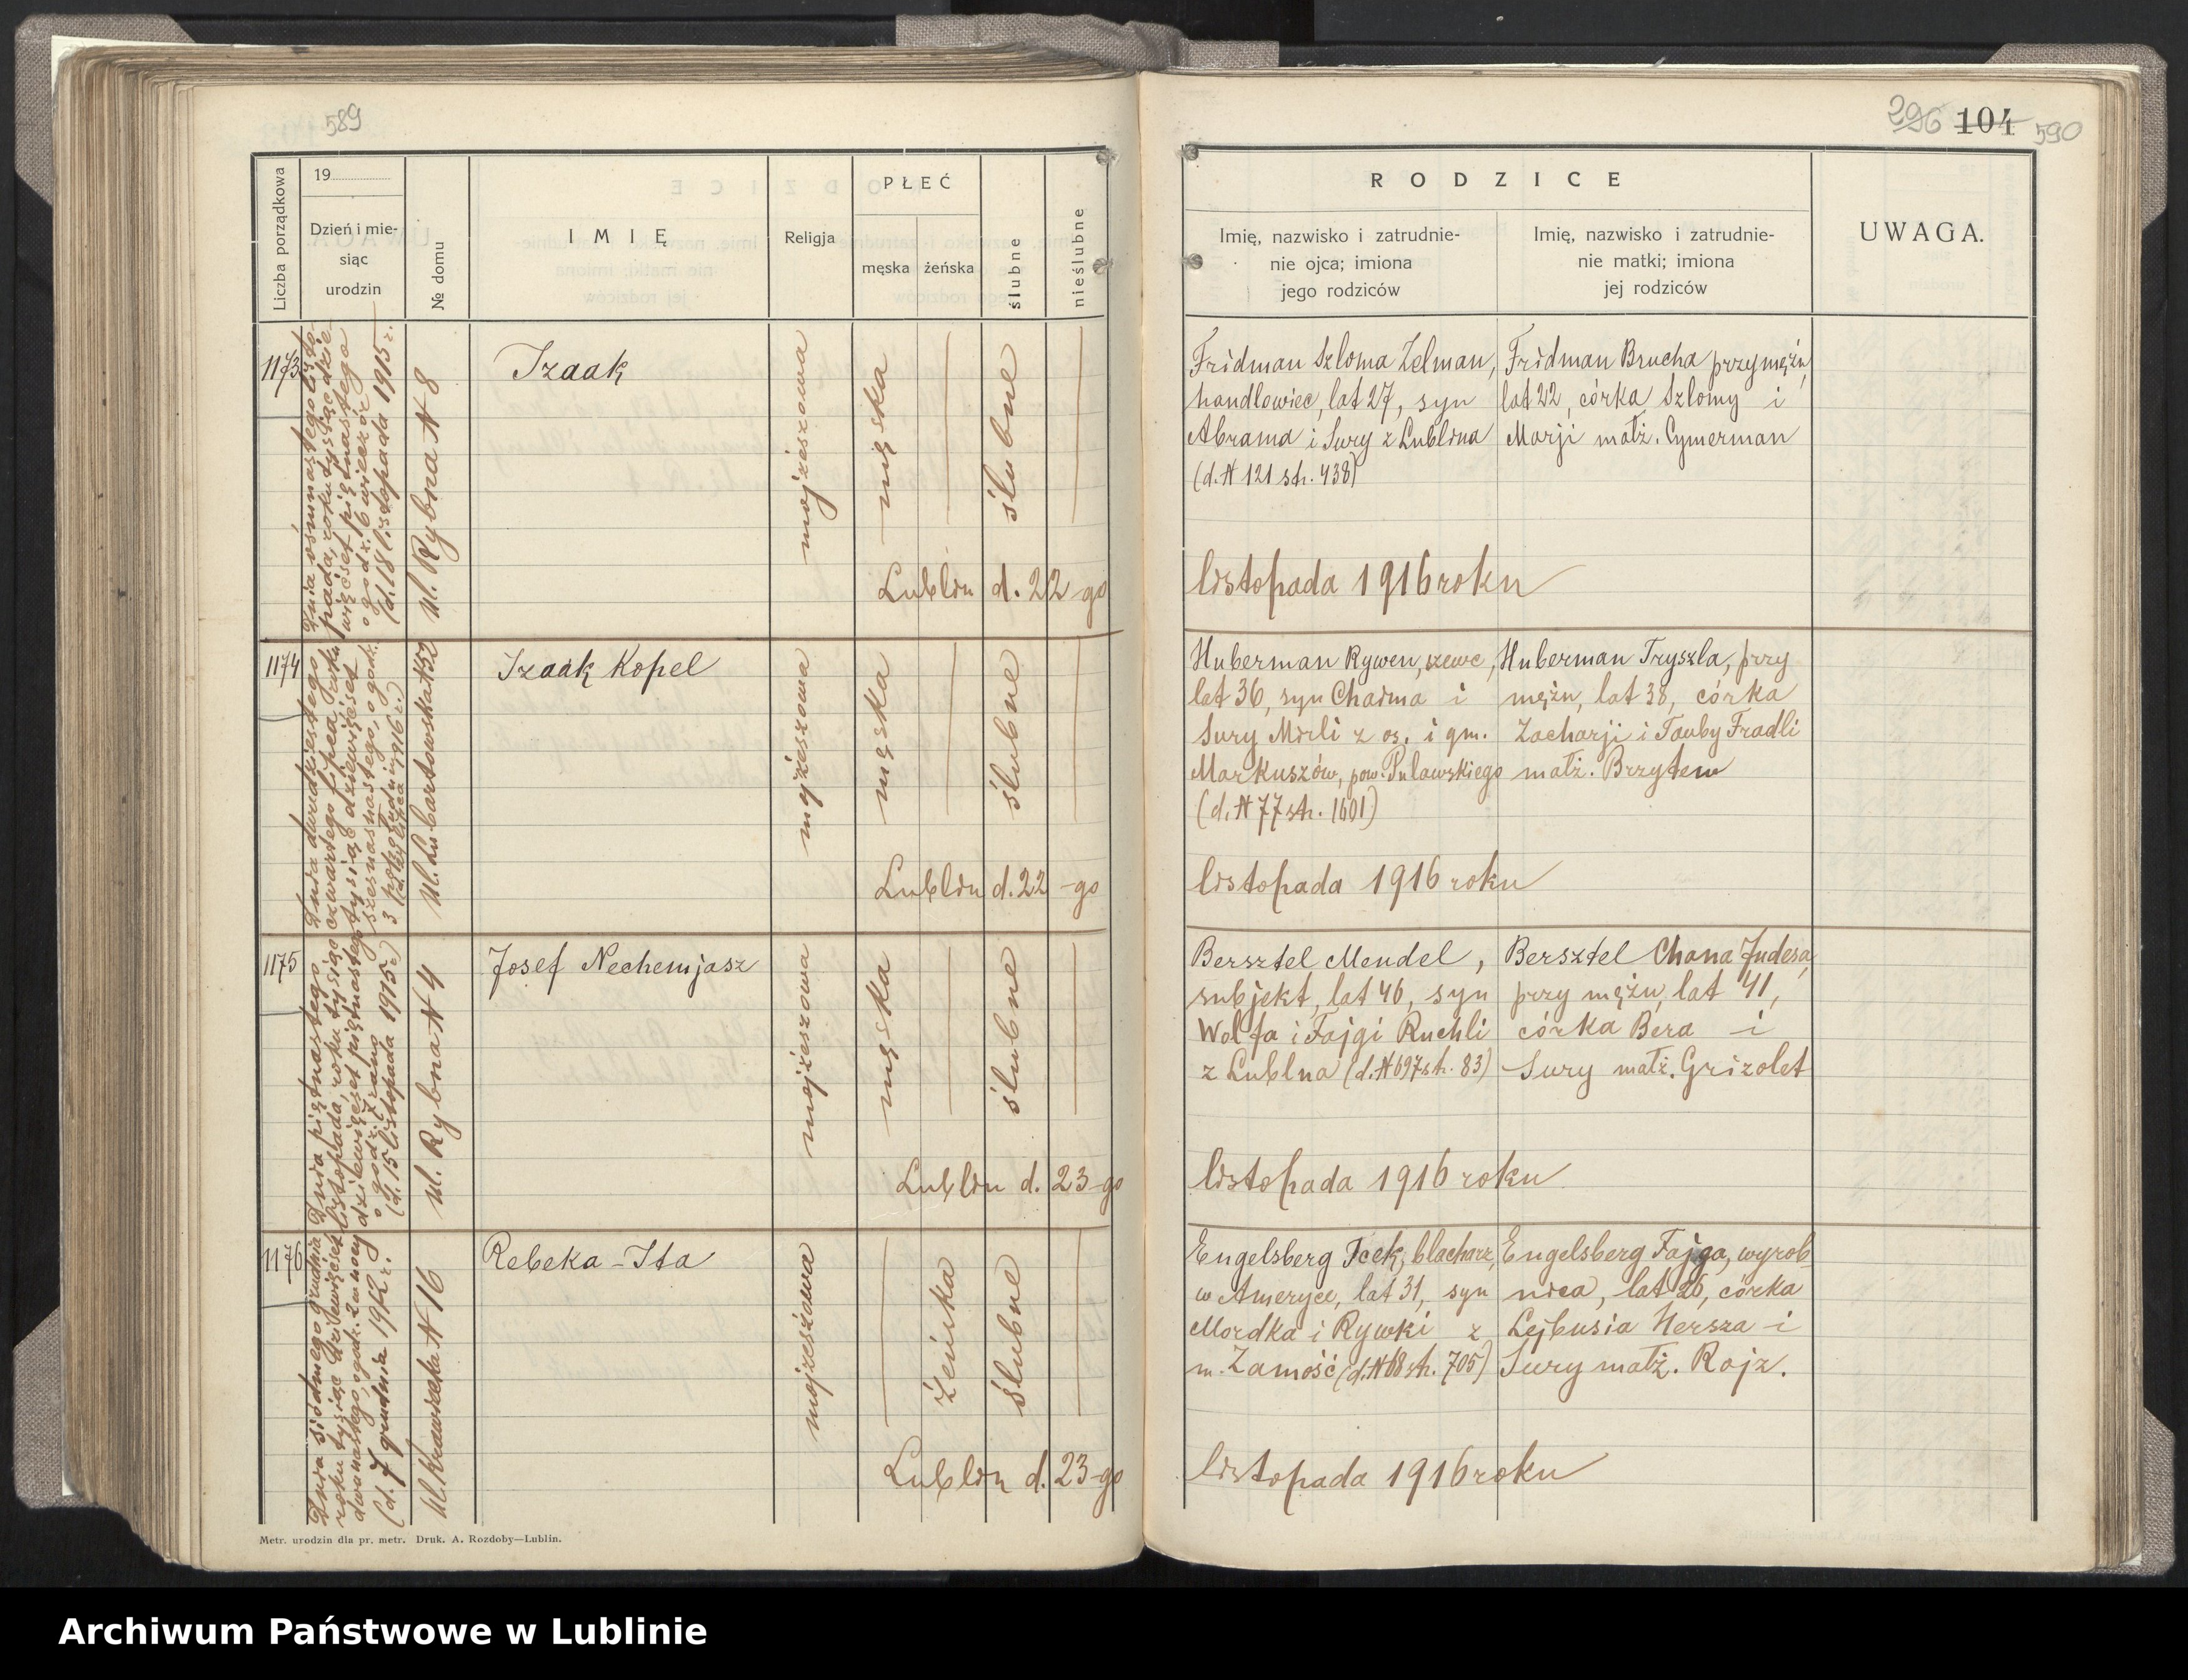 589
296 104 590
Liczba porządkowa
19
Dzień i mie-
siąc
urodzin
№ domu
IMIĘ
Religja
PŁEĆ
męska
żeńska
ślubne
nieślubne
RODZICE
Imię, nazwisko i zatrudnie-
nie ojca; imiona
jego rodziców
Imię, nazwisko i zatrudnie-
nie matki; imiona
jej rodziców
UWAGA.
1173
Dnia ośmnastego listo-
pada, roku tysiąc dzie-
więćset piętnastego
o godz. 6 wieczór
(d. 18 listopada 1915 r.
ul. Rybna N 8
Izaak
mojżeszowa
męska
ślubne
Fridman Szloma Zelman,
handlowiec, lat 27, syn
Abrama i Sury z Lublina
(d. N 121 str. 438)
Fridman Brucha przy mężu,
lat 22, córka Szlomy i
Marji małż. Cymerman
Lublin d. 22-go listopada 1916 roku
1174
Dnia dwudziestego
czwartego lipca, roku
tysiąc dziewięćset
szesnastego, o godz.
3 popołudniu
(d. 24 lipca 1916 r.)
ul. Lubartowska N 52
Izaak Kopel
mojżeszowa
męska
ślubne
Huberman Rywen, szewc,
lat 36, syn Chaima i
Sury Mirli z os. i gm.
Markuszów, pow. Puławskiego
(d. N 77 str. 1601)
Huberman Fryszla, przy
mężu, lat 38, córka
Zacharji i Tauby Fradli
małż. Brzytew
Lublin d. 22-go listopada 1916 roku
1175
Dnia piętnastego
listopada, roku tysiąc
dziewięćset piętnastego
o godz. 7 rano
(d. 15 listopada 1915 r.)
ul. Rybna N 4
Josef Nechemjasz
mojżeszowa
męska
ślubne
Bersztel Mendel,
subjekt, lat 46, syn
Wolfa i Fajgi Ruchli
z Lublna (d. N 697 str. 83)
Bersztel Chana Judesa,
przy mężu, lat 41,
córka Bera i
Sury małż. Grizolet
Lublin d. 23-go listopada 1916 roku
1176
Dnia siódmego grudnia
roku tysiąc dziewięćset
dwunastego, o godz. 2 w nocy
(d. 7 grudnia 1912 r.
ul. Krawiecka N 16
Rebeka-Ita
mojżeszowa
żeńska
ślubne
Engelsberg Icek, blacharz,
w Ameryce, lat 31, syn
Mordka i Rywki z
m. Zamość (d. N 68 str. 705)
Engelsberg Fajga, wyrob
nica, lat 26, córka
Lejbusia Hersza i
Sury małż. Rojz.
Lublin d. 23-go listopada 1916 roku
Metr. urodzin dla pr. metr. Druk. A. Rozdoby—Lublin.
Archiwum Państwowe w Lublinie